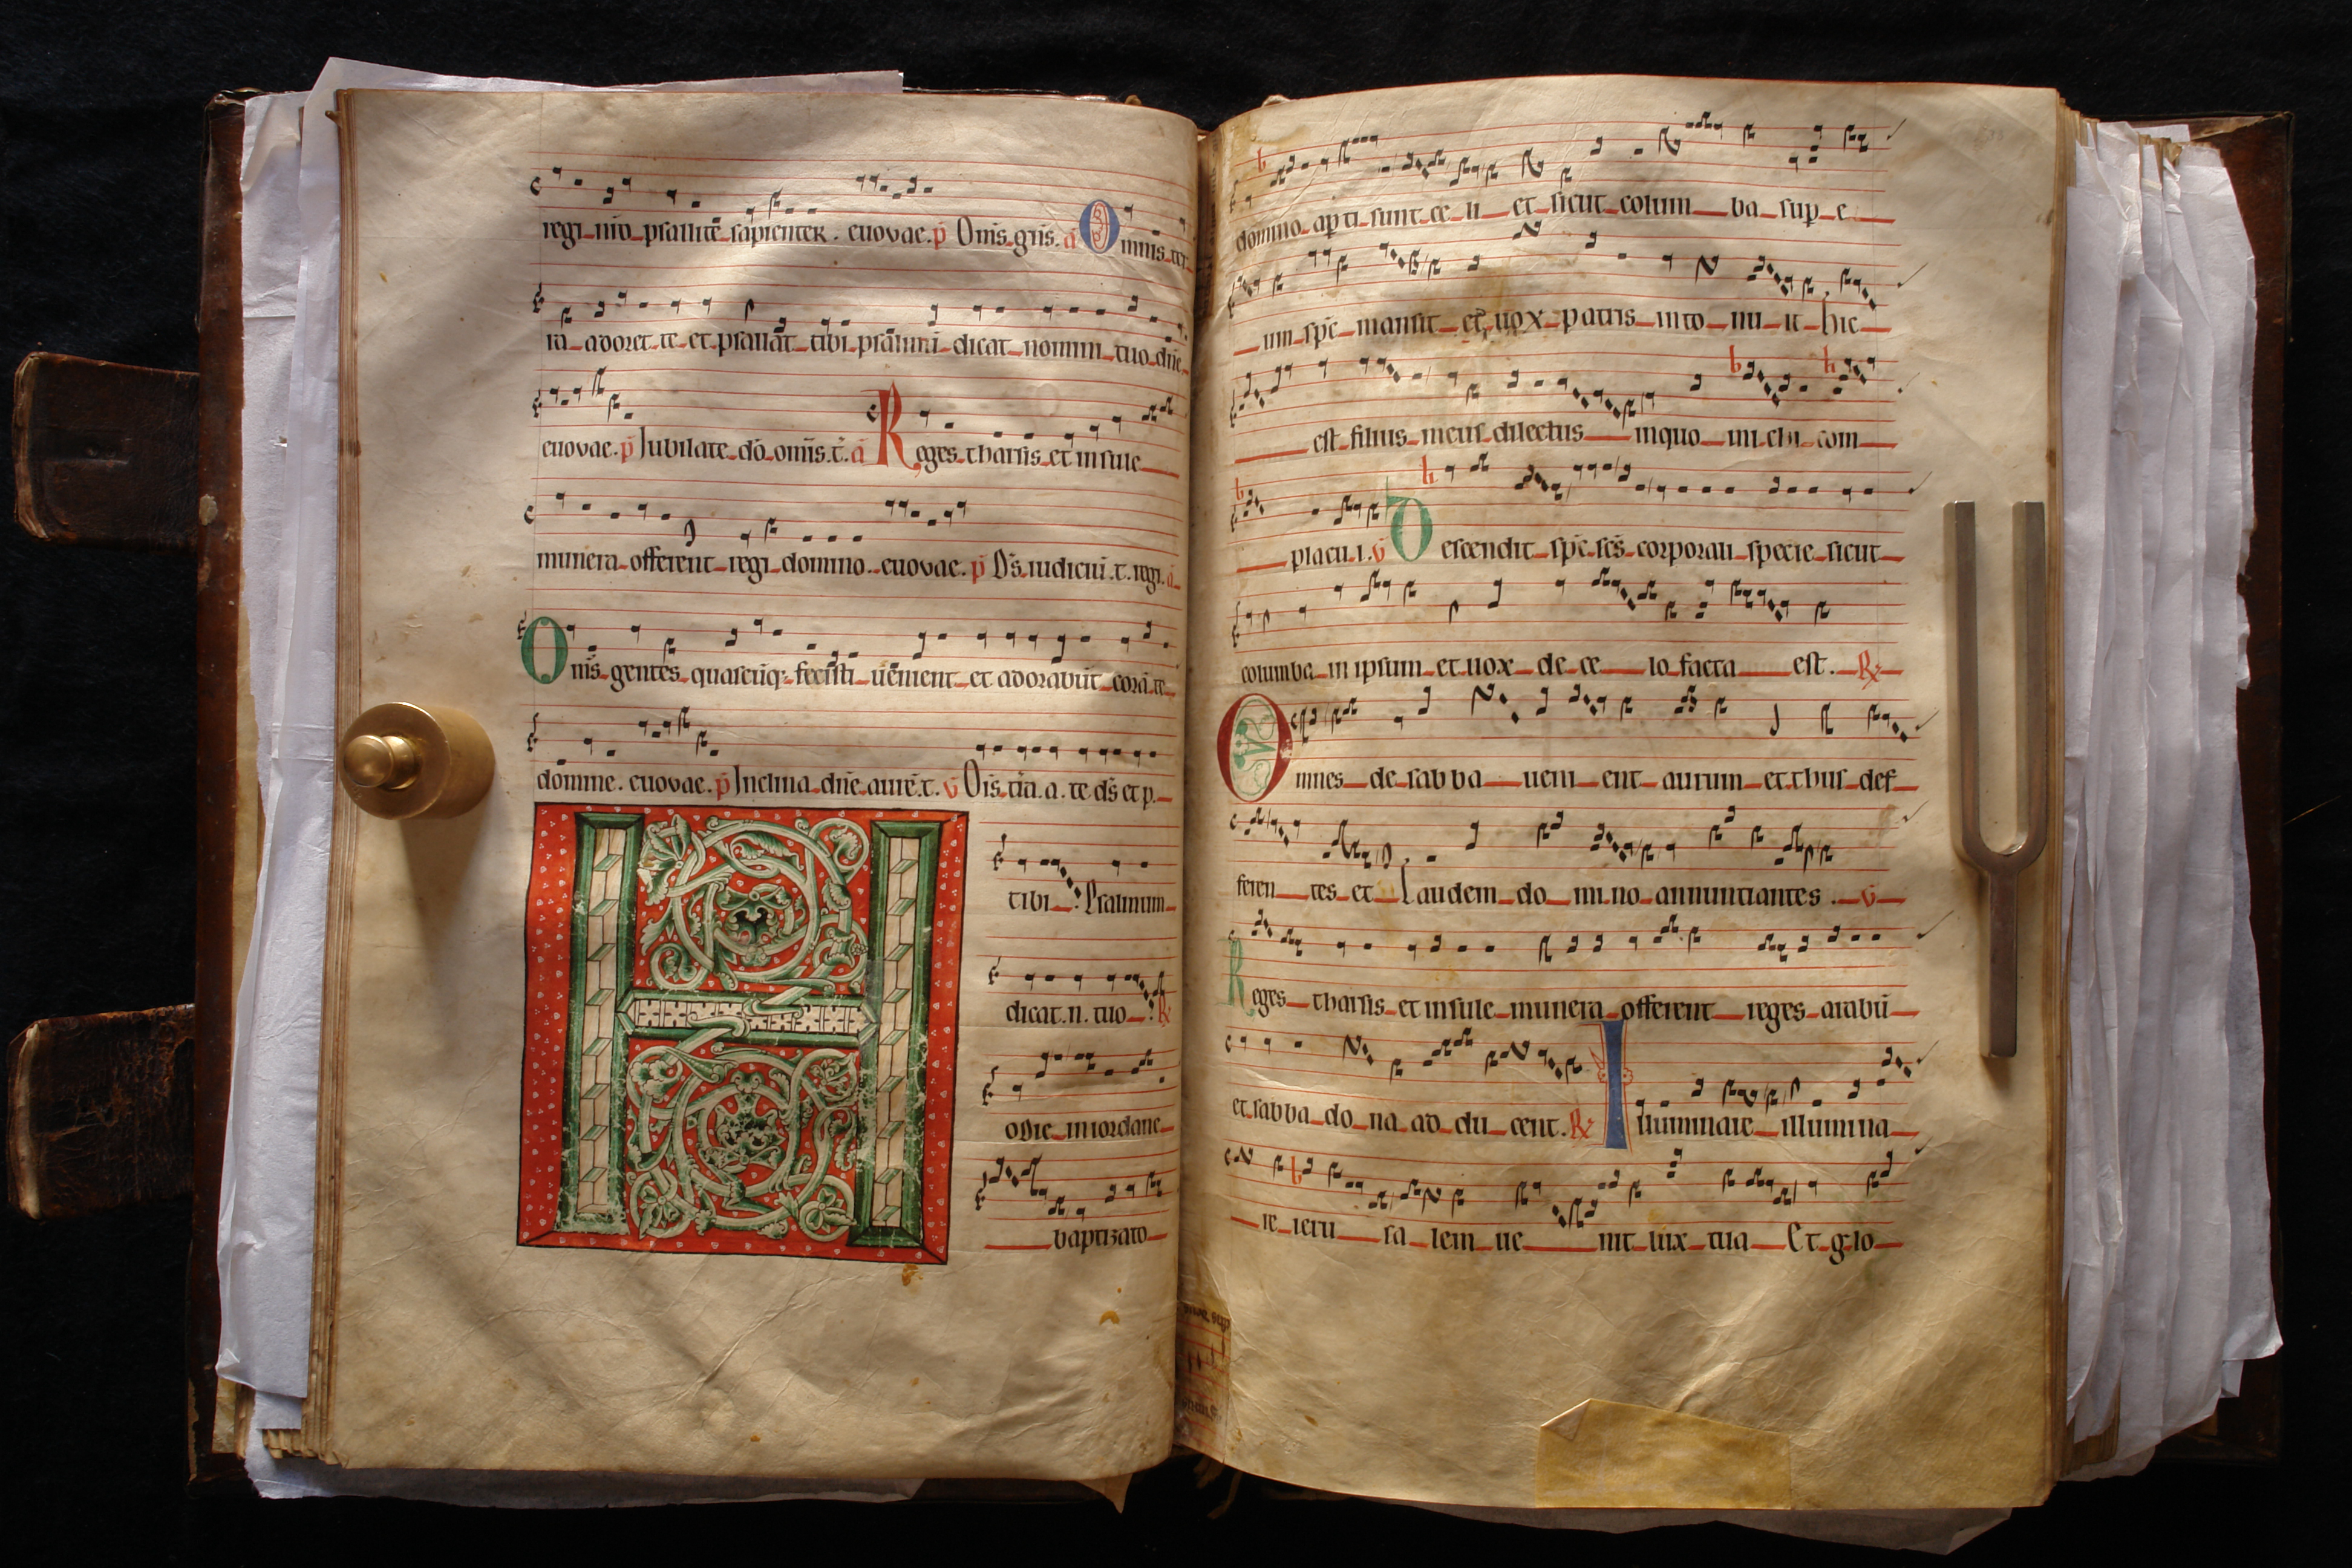 regi nro psallite sapienter. euovae. p̄ Om̄s grīs. ā Omnis ter
ra adoret te et psallat tibi psalmū dicat nomini tuo dn̄e
euovae. p̄ Jubilate dō om̄is. t. ā Reges tharsis et insule
munera offerent regi domino. euovae. p̄ Ds̄ iudiciū. t. regi. ā
Om̄s gentes quascūq; fecisti venient et adorabūt corā te
domine. euovae. p̄ Inclina dn̄e aurē. t. v̄ Ois. tr̄a. a. te ds̄ et p.
tibi Psalmum
dicat. n. tuo R
Hodie in iordane
baptizato
domino aperti sunt ce li et sicut colum ba sup e
um sp̄c mansit et vox patris into nu it hic
est filius meus dilectus inquo mi chi com
placu i. v̄ Descendit sp̄c scs̄ corporali specie sicut
columba in ipsum et vox de ce lo facta est. R
Omnes de sabba veni ent aurum et thus def
feren tes et laudem do mi no annuntiantes. v̄
Reges tharsis et insule munera offerent reges arabū
et sabba do na ad du cent. R Illuminare illumina
re ieru sa lem ve nit lux tua Et glo